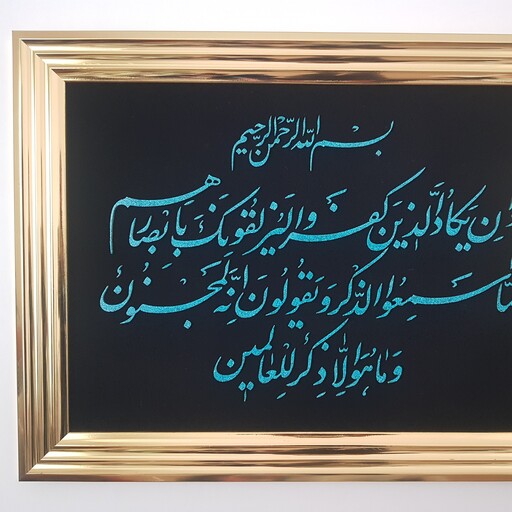 بسم الله الرحمن الرحیم
وان یکاد الذین کفروا لیزلقونک بابصارهم
سمعوا الذکر ویقولون انه لمجنون
وما هو الا ذکر للعالمین